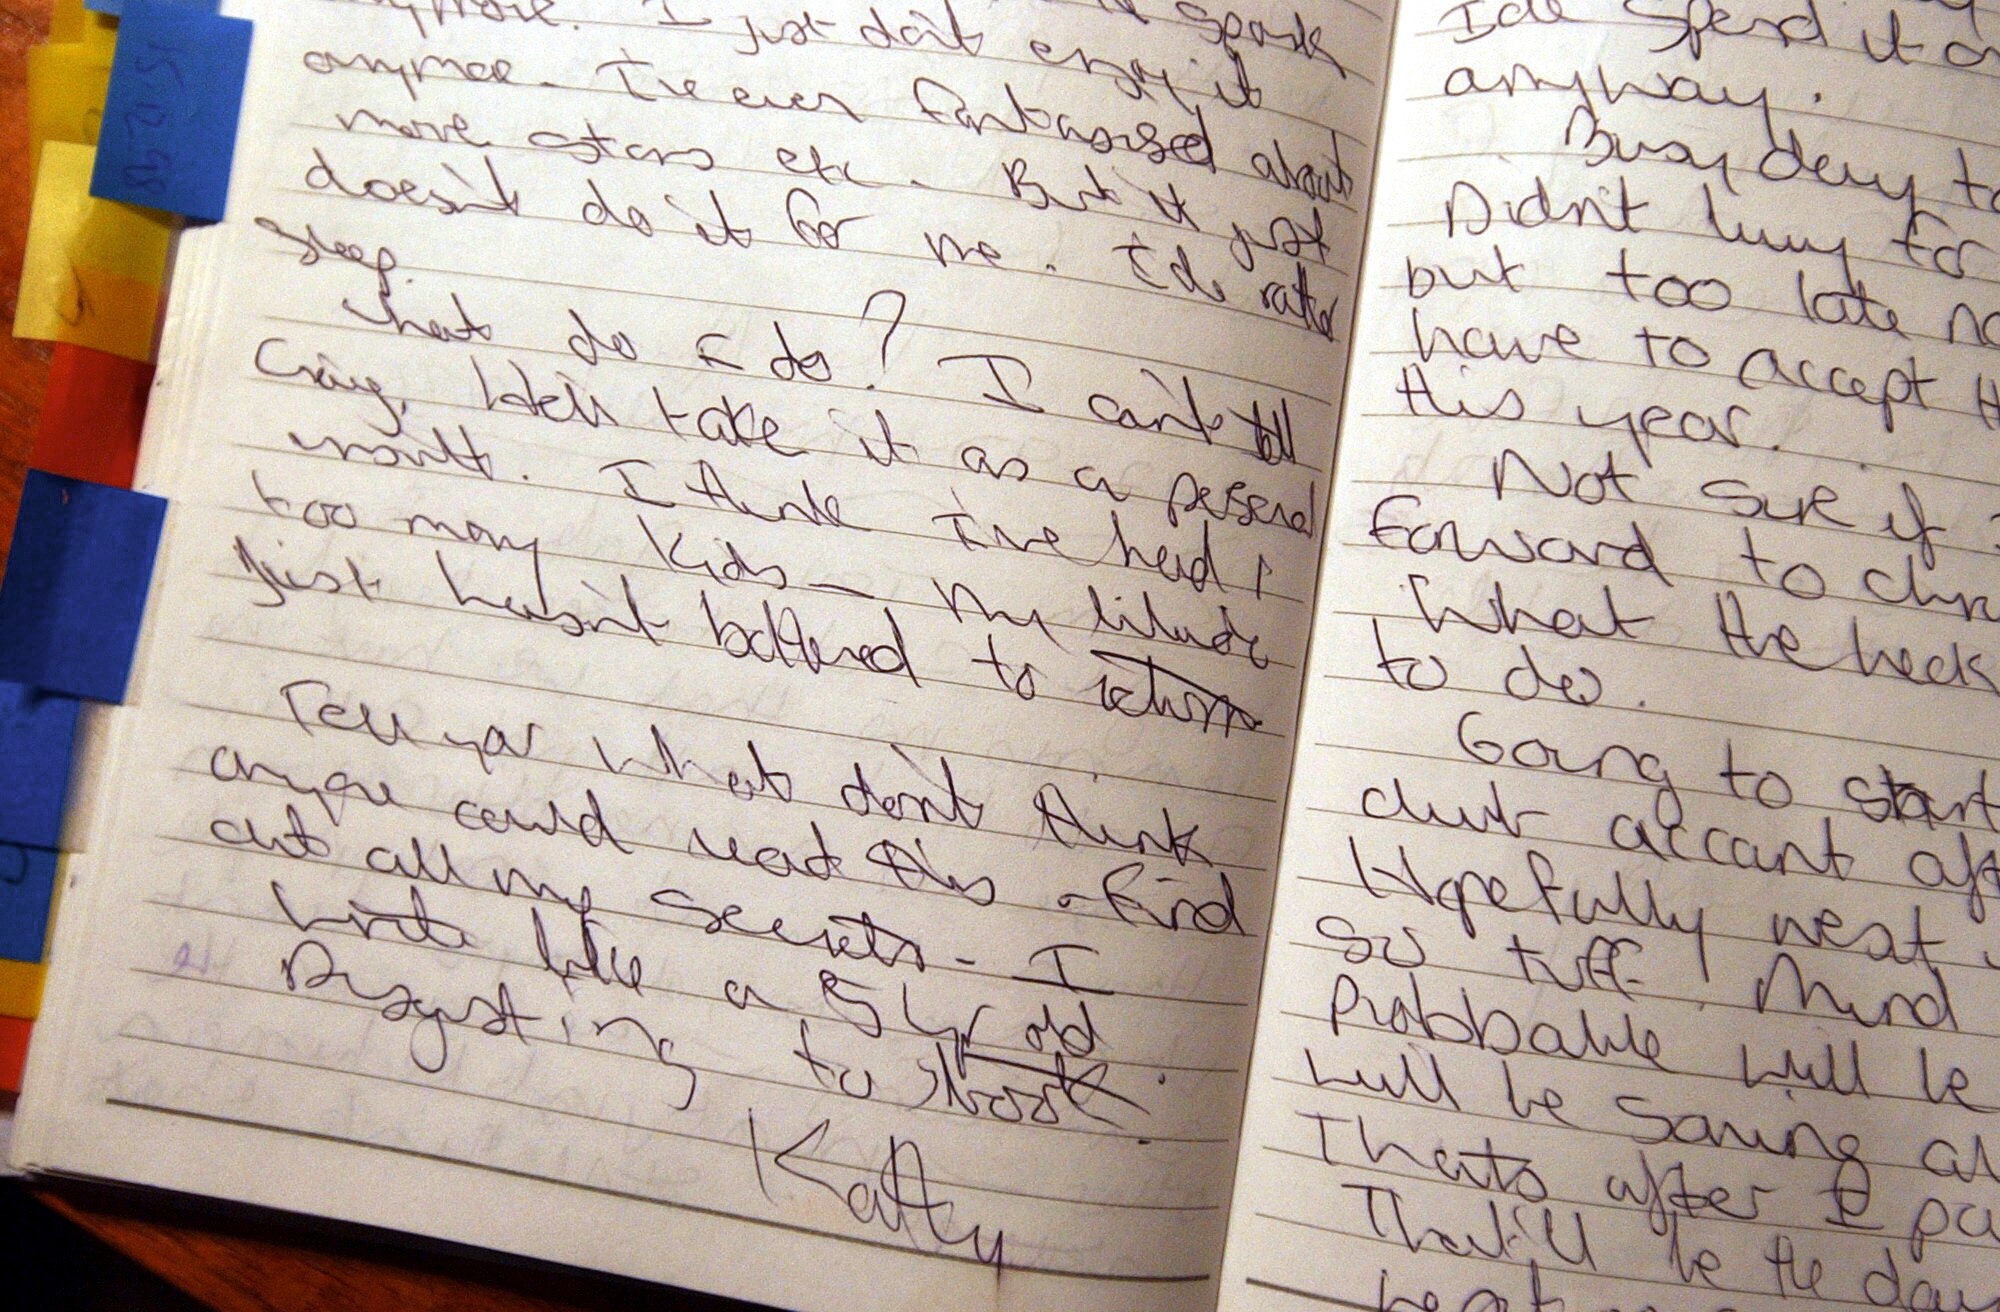 anymore. I spark
just don't enjoy it
anymore - I've even fantasised about
more stars etc. But it just
doesn't do it for me. I'de rather
sleep.
What do I do? I can't tell
Craig, he'll take it as a personal
insult. I think I've had
too many kids - my libido
just hasn't bothered to return
Tell you what don't think
anyone could read this - find
out all my secrets - I
write like a 5 yr old.
Disgusting to look.
Kathy
I'de spend it
anyway.
Busy day
Didn't buy for
but too late
have to accept
this year.
Not sure if
forward to
What the heck
to do.
Going to start
club account
Hopefully next
so tuff. Mind
Probable will be
will be saving
Thats after I
That'll be the day